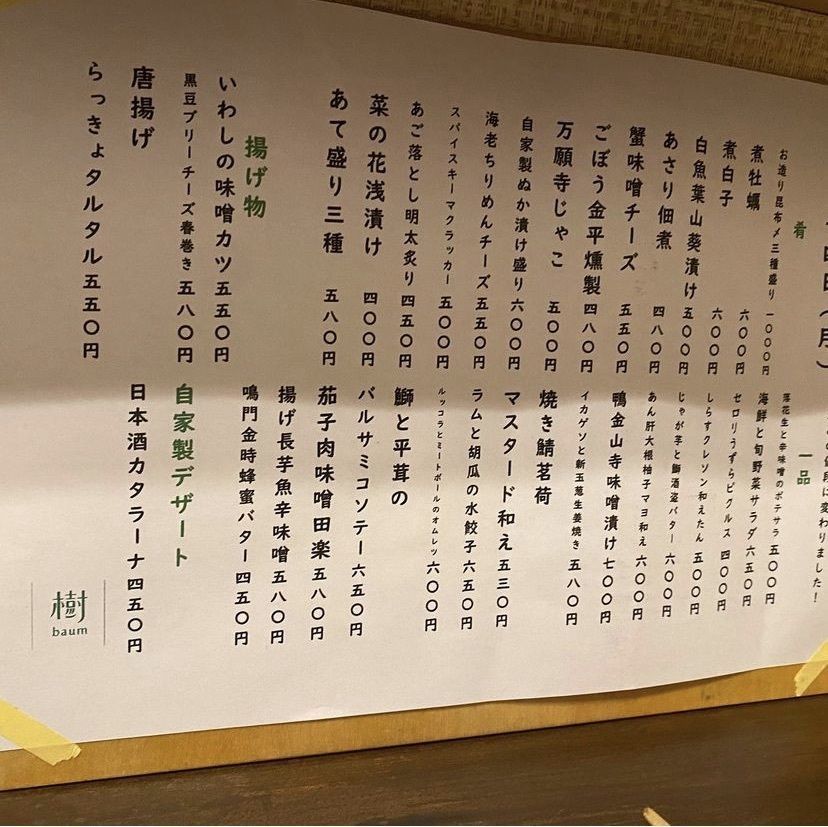 四日(月)
お値段に変わりました!
肴
お造り昆布〆三種盛り 一〇〇〇円
煮牡蠣 六〇〇円
煮白子 六〇〇円
白魚葉山葵漬け 五〇〇円
あさり佃煮 四八〇円
蟹味噌チーズ 五五〇円
ごぼう金平燻製 四八〇円
万願寺じゃこ 五〇〇円
自家製ぬか漬け盛り 六〇〇円
海老ちりめんチーズ 五五〇円
スパイスキーマクラッカー 五〇〇円
あご落とし明太炙り 四五〇円
菜の花浅漬け 四〇〇円
あて盛り三種 五八〇円
揚げ物
いわしの味噌カツ 五五〇円
黒豆ブリーチーズ春巻き 五八〇円
唐揚げ
らっきょタルタル 五五〇円
一品
落花生と辛味噌のポテサラ 五〇〇円
海鮮と旬野菜サラダ 六五〇円
セロリうずらピクルス 四〇〇円
しらすクレソン和えたん 五〇〇円
じゃが芋と鰤酒盗バター 六〇〇円
あん肝大根柚子マヨ和え 六〇〇円
鴨金山寺味噌漬け 七〇〇円
イカゲソと新玉葱生姜焼き 五八〇円
焼き鯖茗荷
マスタード和え 五三〇円
ラムと胡瓜の水餃子 六五〇円
ルッコラとミートボールのオムレツ 六〇〇円
鰤と平茸の
バルサミコソテー 六五〇円
茄子肉味噌田楽 五八〇円
揚げ長芋魚辛味噌 五八〇円
鳴門金時蜂蜜バター 四五〇円
自家製デザート
日本酒カタラーナ 四五〇円
樹
baum